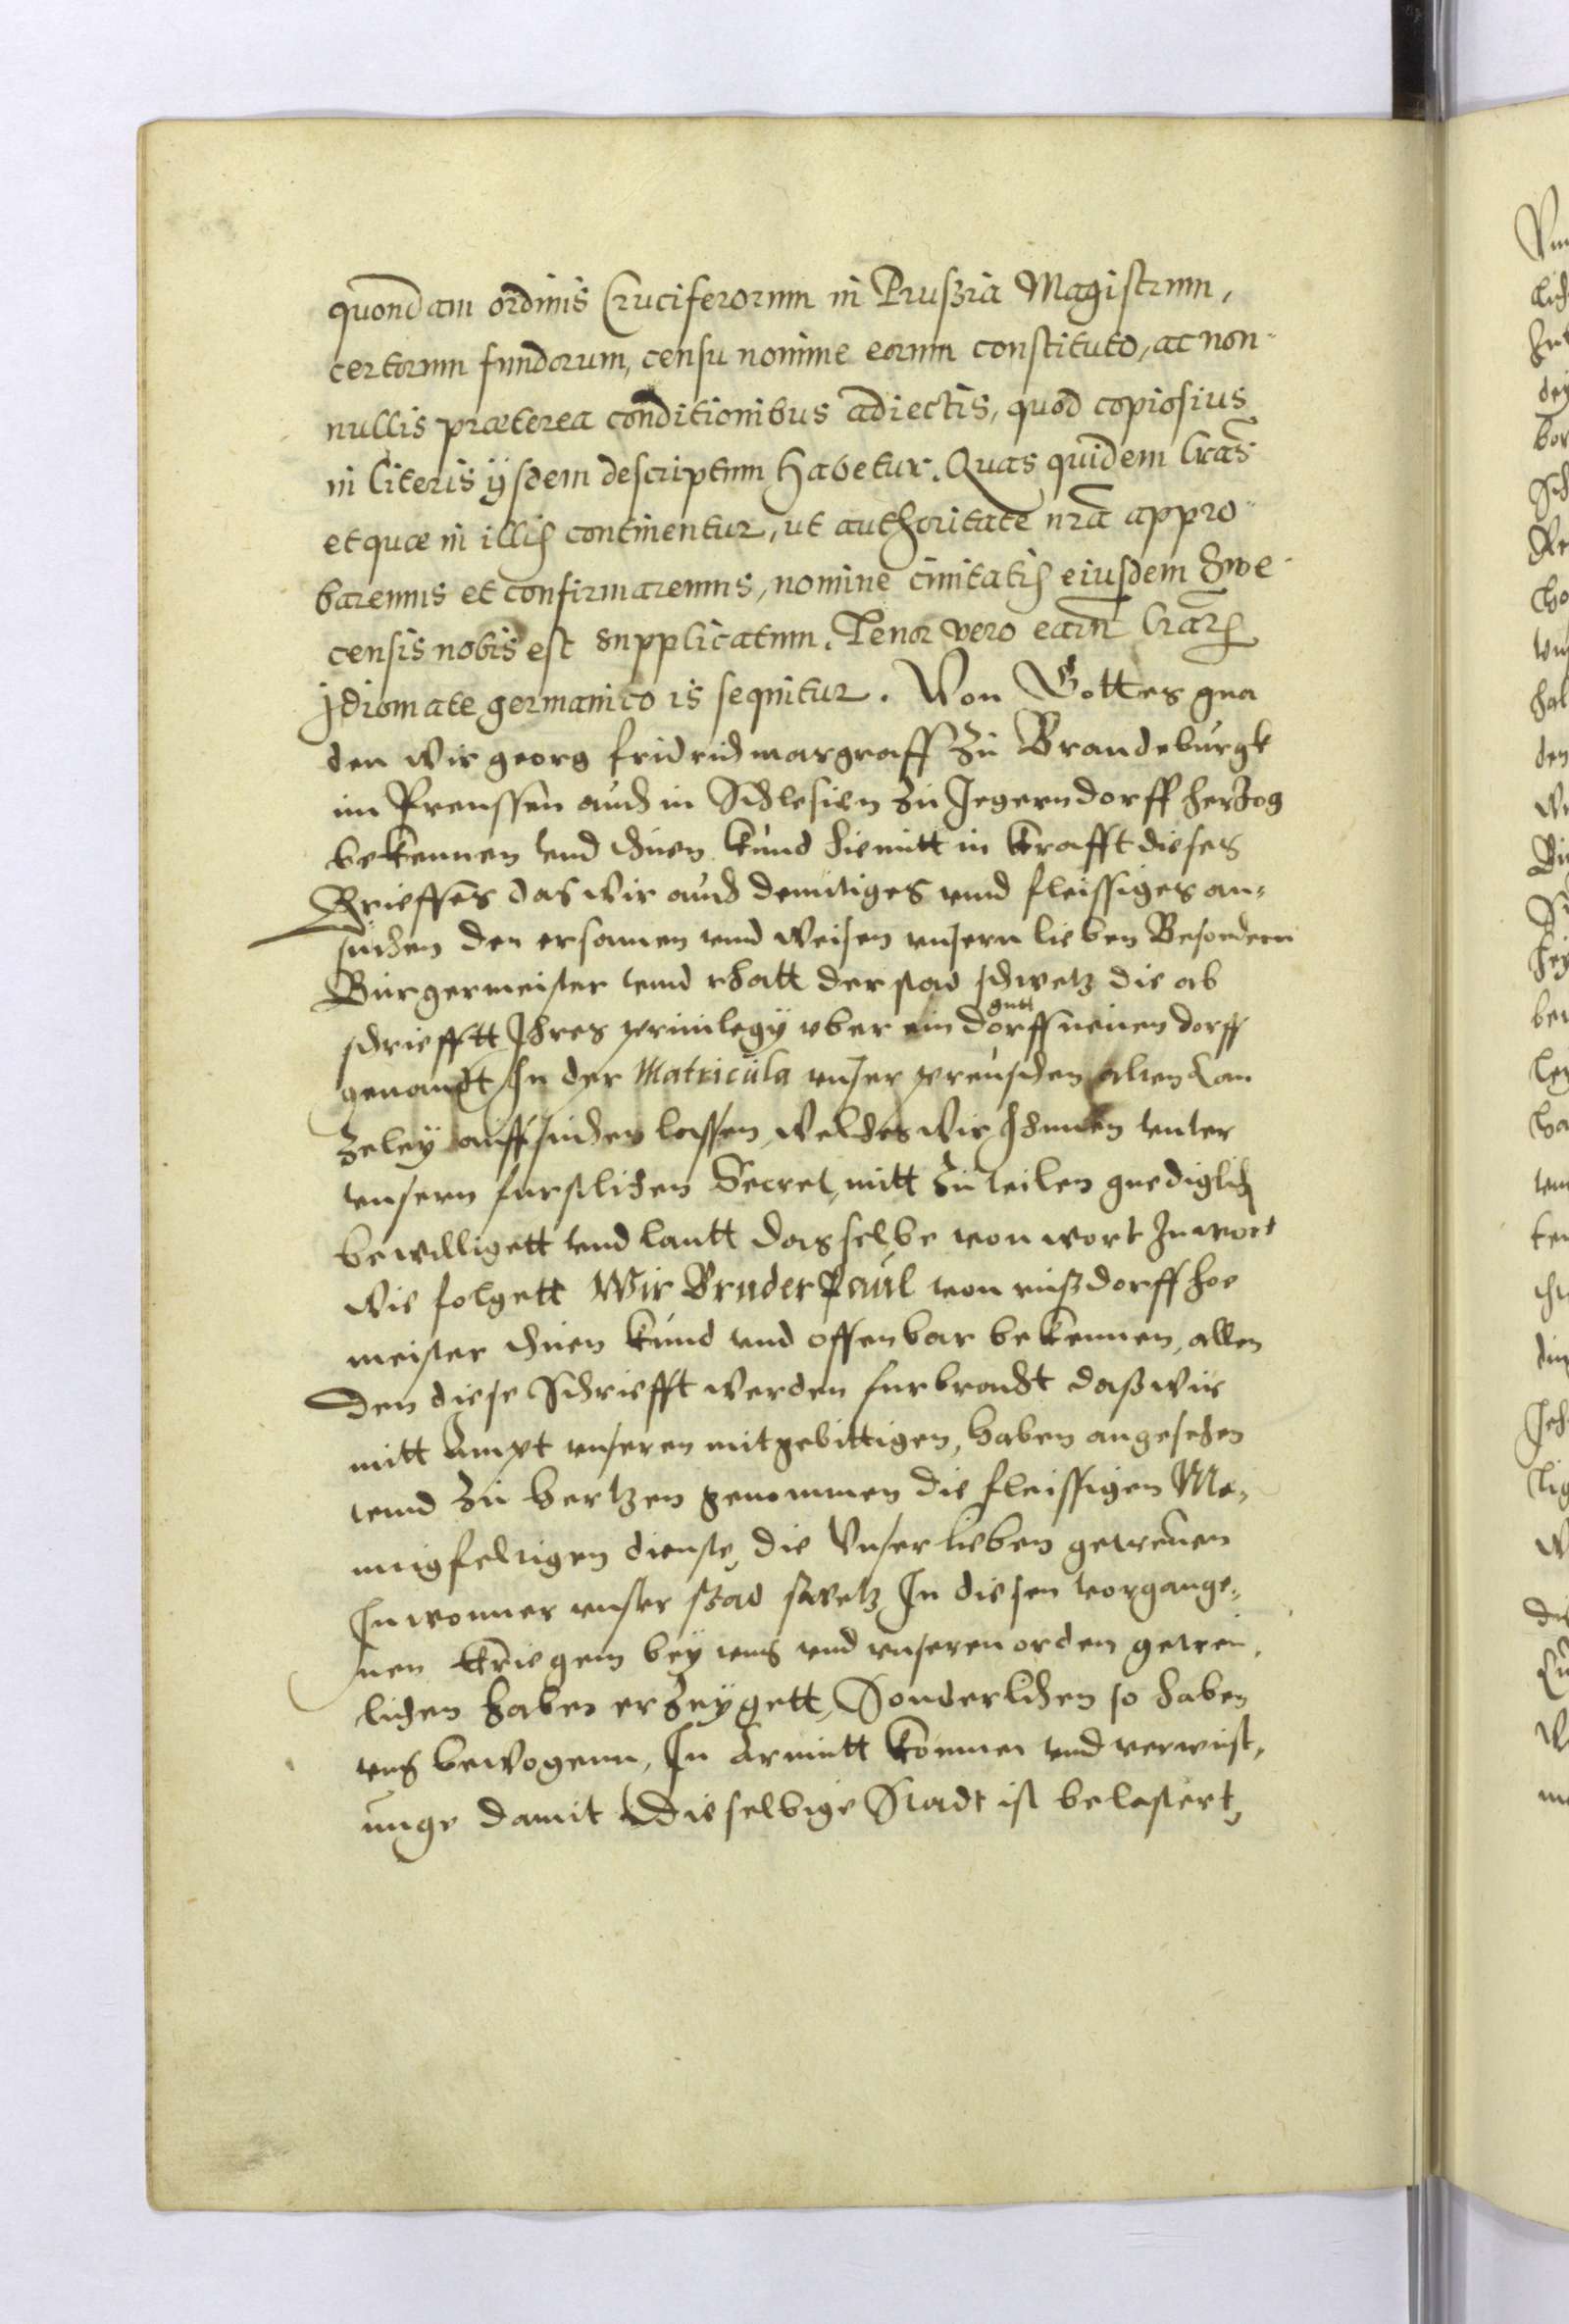 quondam ordinis Cruciferorum in Pruszia Magistrum,
certorum fundorum, censu nomine eorum constituto, ac non-
nullis præterea conditionibus adiectis, quod copiosius
in literis ijsdem descriptum habetur. Quas quidem lras
et quæ in illis continentur, ut authoritate nra appro-
baremus et confirmaremus, nomine civitatis eiusdem Swe-
censis nobis est supplicatum. Tenor vero earum lrarum
Idiomate germanico is sequitur. Von Gottes gna
den wir georg fridrich margraff zu Brandeburgk
im Preussen auch in Schlesien zu Jegerndorff herzog
bekennen vnd thuen kund hiemitt in krafft dieses
Brieffes das wir auch demütiges vnnd fleissiges an-
suchen der ersamen vnnd weisen vnsern lieben Besondern
Burgermeister vnnd rhatt der stad schwetz die ab
schriefftt Ihres priuilegij vber ein dorff gutt neuen dorff
genandt In der Matricula vnser preuschen alten Can
zeley auffsuchen lassen, welches wir Ihnnen vnter
vnsern furstlichen Secret, mitt zu teilen gnediglich
bewilligett vnd lautt dasselbe von wort zu wort
wie folgett Wir Bruder Paul von rußdorff hoe
meister thuen kund vnd offenbar bekennen, allen
den diese Schriefft werden furbracht daß wir
mitt Ampt vnseren mitgebittigen, haben angesehen
vnnd zu hertzen genommen die fleissigen Ma-
nnigfeltigen dienste, die Vnser lieben getreuen
Inwonner vnser stad swetz In diesen vorgange-
nen kriegein bey vns vnd vnseren orden getreu-
lichen haben erzeygett, Sonderlichen so haben
vns bewogenn, In Armutt kommer vnd verwust-
unge damit dieselbige Stadt ist belastert,